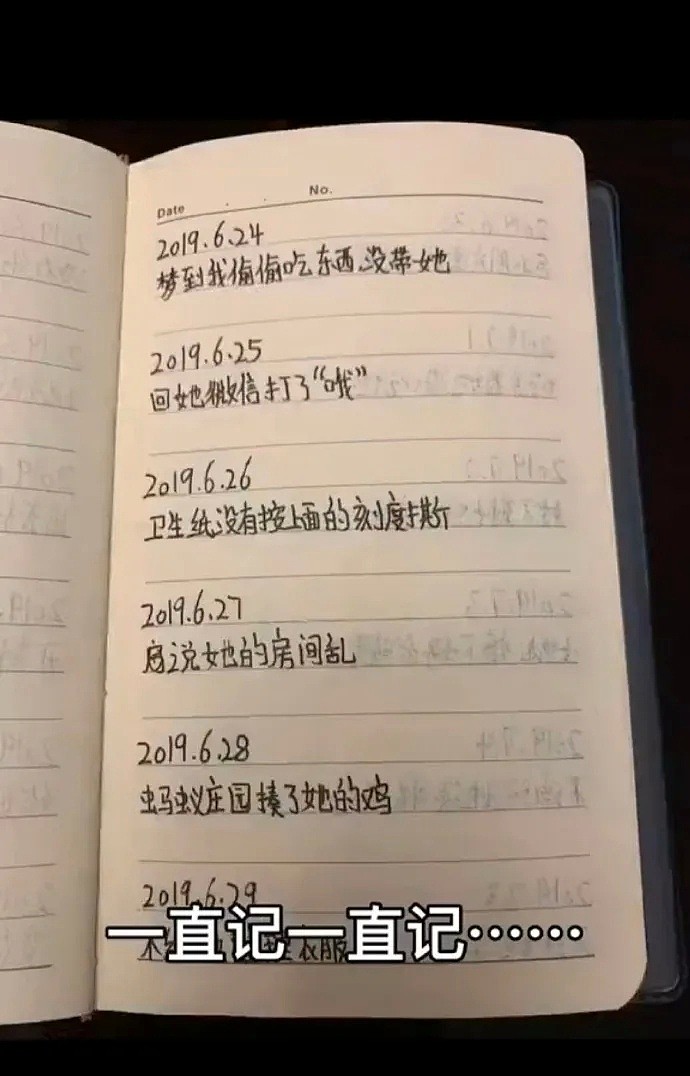 Date
No.
2019.6.24
梦到我偷偷吃东西没带她
2019.6.25
回她微信打了“哦”
2019.6.26
卫生纸没有按上面的刻度撕
2019.6.27
说她的房间乱
2019.6.28
蚂蚁庄园揍了她的鸡
2019.6.29
一直记一直记……
衣服